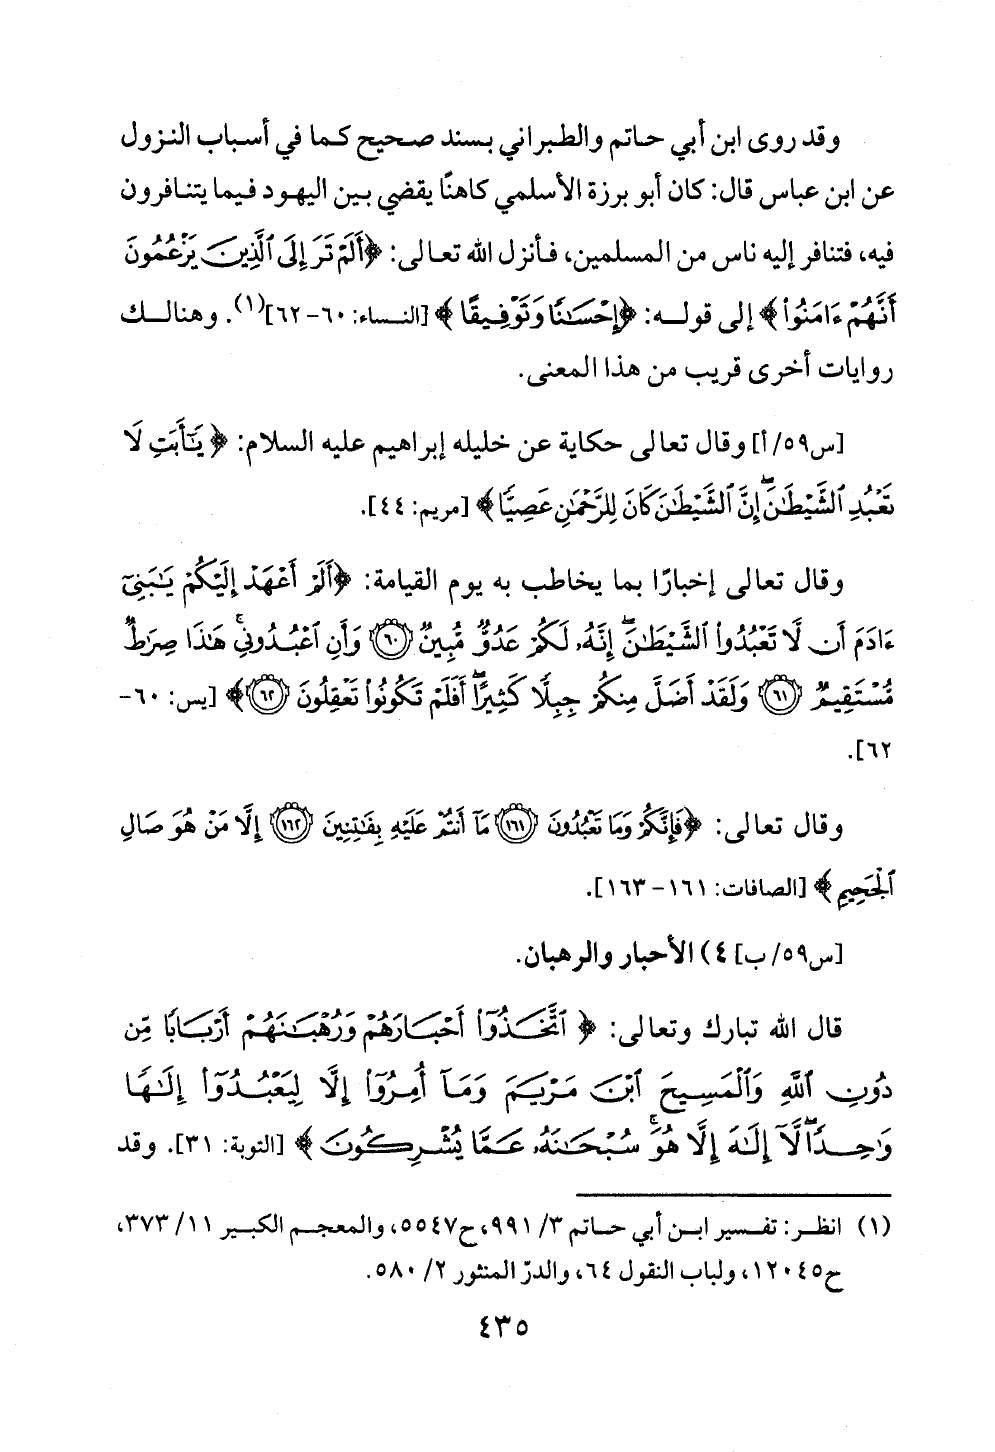 وقد روى ابن أبي حاتم والطبراني بسند صحيح كما في أسباب النزول
عن ابن عباس قال: كان أبو برزة الأسلمي كاهنًا يقضي بين اليهود فيما يتنافرون
فيه، فتنافر إليه ناس من المسلمين، فأنزل الله تعالى: ﴿أَلَمْ تَرَ إِلَى ٱلَّذِينَ يَزْعُمُونَ
أَنَّهُمْ ءَامَنُوا۟﴾ إلى قوله: ﴿إِحْسَـٰنًا وَتَوْفِيقًا﴾ [النساء: ٦٠-٦٢](١). وهنالك
روايات أخرى قريب من هذا المعنى.
[س٥٩/أ] وقال تعالى حكاية عن خليله إبراهيم عليه السلام: ﴿يَـٰٓأَبَتِ لَا
تَعْبُدِ ٱلشَّيْطَـٰنَ ۖ إِنَّ ٱلشَّيْطَـٰنَ كَانَ لِلرَّحْمَـٰنِ عَصِيًّا﴾ [مريم: ٤٤].
وقال تعالى إخبارًا بما يخاطب به يوم القيامة: ﴿أَلَمْ أَعْهَدْ إِلَيْكُمْ يَـٰبَنِىٓ
ءَادَمَ أَن لَّا تَعْبُدُوا۟ ٱلشَّيْطَـٰنَ ۖ إِنَّهُۥ لَكُمْ عَدُوٌّ مُّبِينٌ ٦٠ وَأَنِ ٱعْبُدُونِى ۚ هَـٰذَا صِرَٰطٌ
مُّسْتَقِيمٌ ٦١ وَلَقَدْ أَضَلَّ مِنكُمْ جِبِلًّا كَثِيرًا ۖ أَفَلَمْ تَكُونُوا۟ تَعْقِلُونَ ٦٢﴾ [يس: ٦٠-
٦٢].
وقال تعالى: ﴿فَإِنَّكُمْ وَمَا تَعْبُدُونَ ١٦١ مَآ أَنتُمْ عَلَيْهِ بِفَـٰتِنِينَ ١٦٢ إِلَّا مَنْ هُوَ صَالِ
ٱلْجَحِيمِ﴾ [الصافات: ١٦١-١٦٣].
[س٥٩/ب] ٤) الأحبار والرهبان.
قال الله تبارك وتعالى: ﴿ٱتَّخَذُوٓا۟ أَحْبَارَهُمْ وَرُهْبَـٰنَهُمْ أَرْبَابًا مِّن
دُونِ ٱللَّهِ وَٱلْمَسِيحَ ٱبْنَ مَرْيَمَ وَمَآ أُمِرُوٓا۟ إِلَّا لِيَعْبُدُوٓا۟ إِلَـٰهًا
وَٰحِدًا ۖ لَّآ إِلَـٰهَ إِلَّا هُوَ ۚ سُبْحَـٰنَهُۥ عَمَّا يُشْرِكُونَ﴾ [التوبة: ٣١]. وقد
(١) انظر: تفسير ابن أبي حاتم ٣/ ٩٩١، ح٥٥٤٧، والمعجم الكبير ١١/ ٣٧٣،
ح١٢٠٤٥، ولباب النقول ٦٤، والدرّ المنثور ٢/ ٥٨٠.
٤٣٥